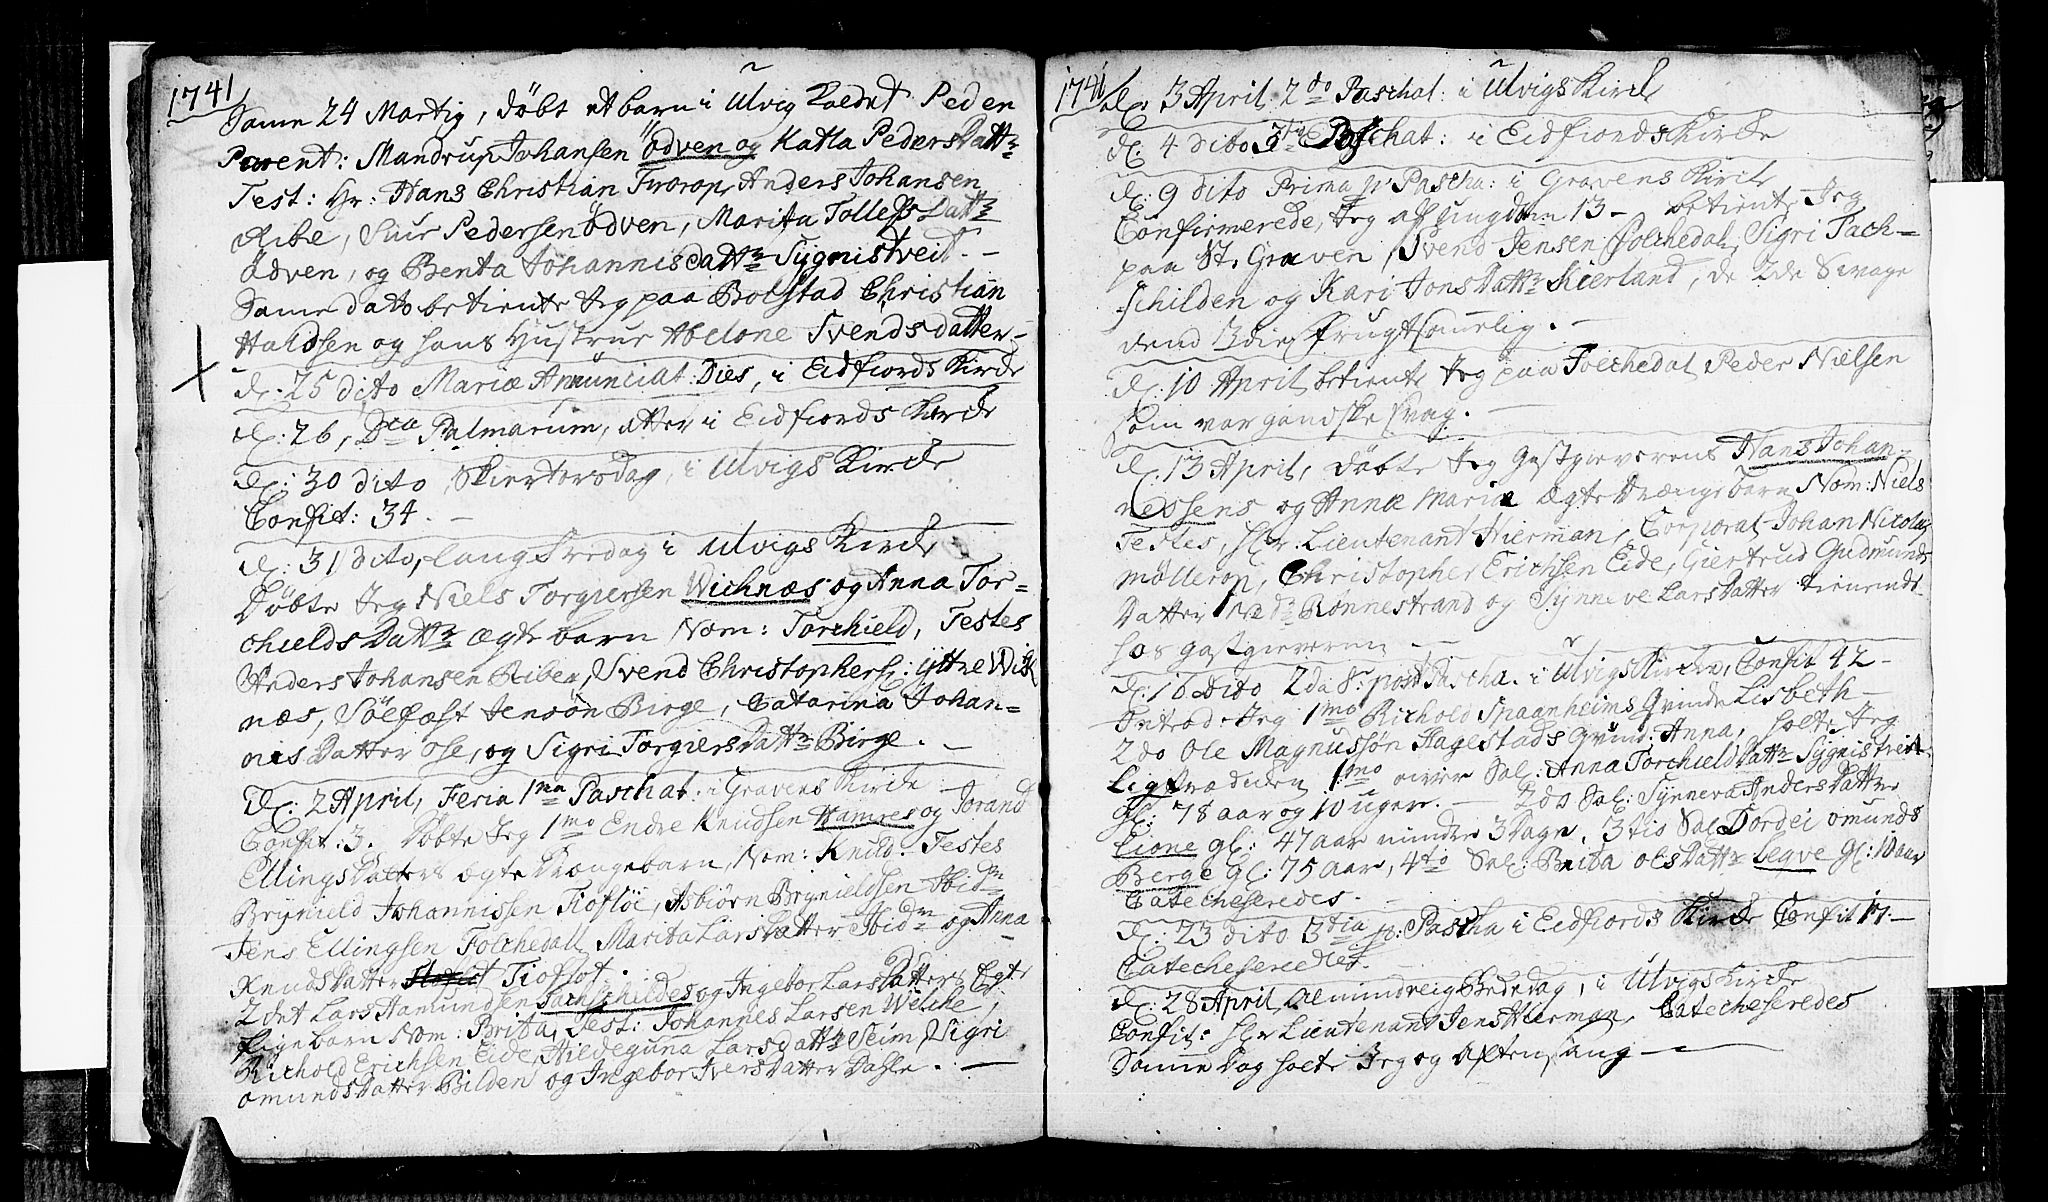 1741
Samme 24 Martij, døbt et barn i Ulvig kaldet Peder
Parent: Mandrup Johansen Ödven og Katla Peders Dattr
Test: Hr: Hans Christian Tworop, Anders Johansen
Ribe, Siur Pedersen Ödven, Marita Tollefs Dattr
Ödven, og Benta Johannisdattr Sygnistveit. -
Samme dato betiente Jeg paa Bolstad Christian
Haldsen og hans Hustrue Abelone Svendsdatter -
d: 25 dito Mariæ Annunciat: Dies, i Eidfiords Kirke
d: 26, Dca Palmarum, atter i Eidfiords Kirke
d: 30 dito, Skiertorsdag, i Ulvigs Kirke
Confit: 34. -
d: 31 dito, langfredag i Ulvigs Kirke
Døbte Jeg Niels Torgiersen Wichnæs og Anna Tor-
chieldsDattr ægte barn Nom: Torchield, Testes
Anders Johansen Ribe, Svend Christophers: ÿttre Wik
næs, Sölfast Jensön Birge, Catarina Johan=
nis Datter Ose, og Sigri Torgiers Dattr Birge. -
d: 2 April, Feria 1ma Paschat: i Gravens Kirke -
Confit: 3. Døbte Jeg 1mo Endre Knudsen Hamres og Jorand
Ellings Datters ægte Drængebarn, Nom: Knud. Testes
Brynield Johannissen Tiofløt, Asbiörn Brynieldsen Ibidm
Jens Ellingsen Folchedall Marita Lars Datter Ibidm og Anna
Knuds Datter Tioflot.
2det Lars Hamundsen Tachschildes og Ingebor Lars Datters Egte
Pigebarn Nom: Brita, Test: Johannes Larsen Welche,
Richold Erichsen Eide, Hildeguna Larsdattr Seim, Sigri
Omunds Datter Bilden og Ingebor Ivers Datter Dahle. -
1741
d: 3 April 2do Paschat: i Ulvigs Kirke
d: 4 dito 3tia Paschat: i Eidfiords Kirke
d: 9 dito Prima p: Pascha: i Gravens Kirke
Confirmerede Jeg af ungdom 13 - betiente Jeg
paa St. Graven, Svend Jensen Folchedal, Sigri Tach=
schilden og Kari Jons Dattr Skierland, de 2de Svage
dend 3die frugtsommelig. -
d: 10 April betiente Jeg paa Folchedal Peder Nielsen
som var gandske svag. -
d: 13 April, døbte Jeg Gestgieverens Hans Johan-
nessens og Anna Maria ægte Drængebarn Nom: Niels
Testes, Hr: Lieutenant Hierman, Corporal Johan Nicolaj
Møllerop, Christopher Erichsen Eide, Giertrud Gudmunds
Datter Rønnestrand og Synneve Lars Datter tienende
hos gestgieveren -
d: 16 dito 2da S: post Pascha: i Ulvigs Kirke, Confit 42 -
Introd: Jeg 1mo Richold Spaanheims Qvinde Lisbeth -
2do Ole Magnussøn Hagestads Qvinde: Anna, holte Jeg
Ligprædiken 1mo over Sal: Anna Torchields Dattr Sygnistveit
gl: 78 aar og 10 uger. - 2do Sal: Synneva Anders Datter
Lione gl: 47 aar mindre 3 Dage, 3tio Sal Dordei Omunds
Berge gl: 75 aar, 4to Sal: Brita Ols Dattr Legve gl: 10 aar
Catecheseredes. -
d: 23 dito 3tia p: Pascha i Eidfiords Kirke Confit 17. -
Catecheseredes.
d: 28 April, Almindelig Bededag, i Ulvigs Kirke
Confit: Hr Lieutenant Jens Hierman, Catecheseredes
Samme Dag holte Jeg og Aftensang -